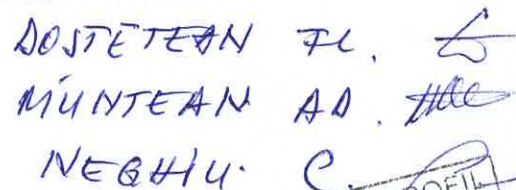 DOSTETEAN FL.
MUNTEAN AD.
NEGHIU. C.